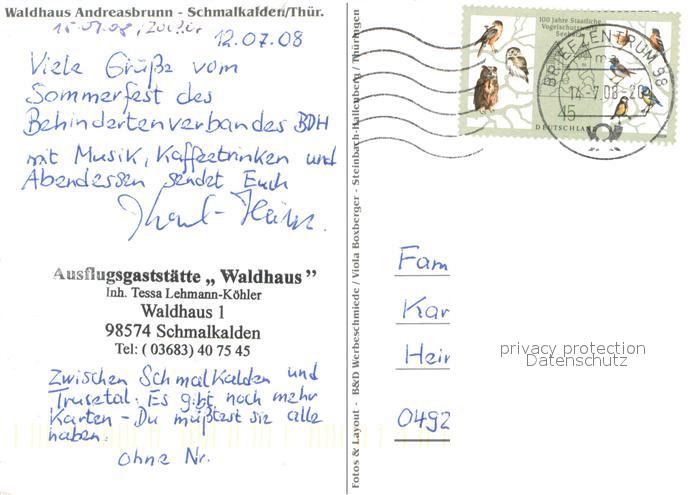 Waldhaus Andreasbrunn - Schmalkalden/Thür.
12.07.08
Viele Grüße vom
Sommerfest des
Behindertenverbandes BDH
mit Musik, Kaffeetrinken und
Abendessen sendet Euch
Karl-Heinz.
Ausflugsgaststätte „ Waldhaus "
Inh. Tessa Lehmann-Köhler
Waldhaus 1
98574 Schmalkalden
Tel: ( 03683) 40 75 45
Zwischen Schmalkalden und
Trusetal. Es gibt noch mehr
Karten - Du müßtest sie alle
haben.
ohne Nr.
Fotos & Layout - B&D Werbeschmiede / Viola Boxberger - Steinbach-Hallenberg / Thüringen
100 Jahre Staatliche
Vogelschutzwarte
Seebach
45
DEUTSCHLAND
BRIEFZENTRUM 98
14.-7.08-20
Fam
Kar
Heir
0492
privacy protection
Datenschutz